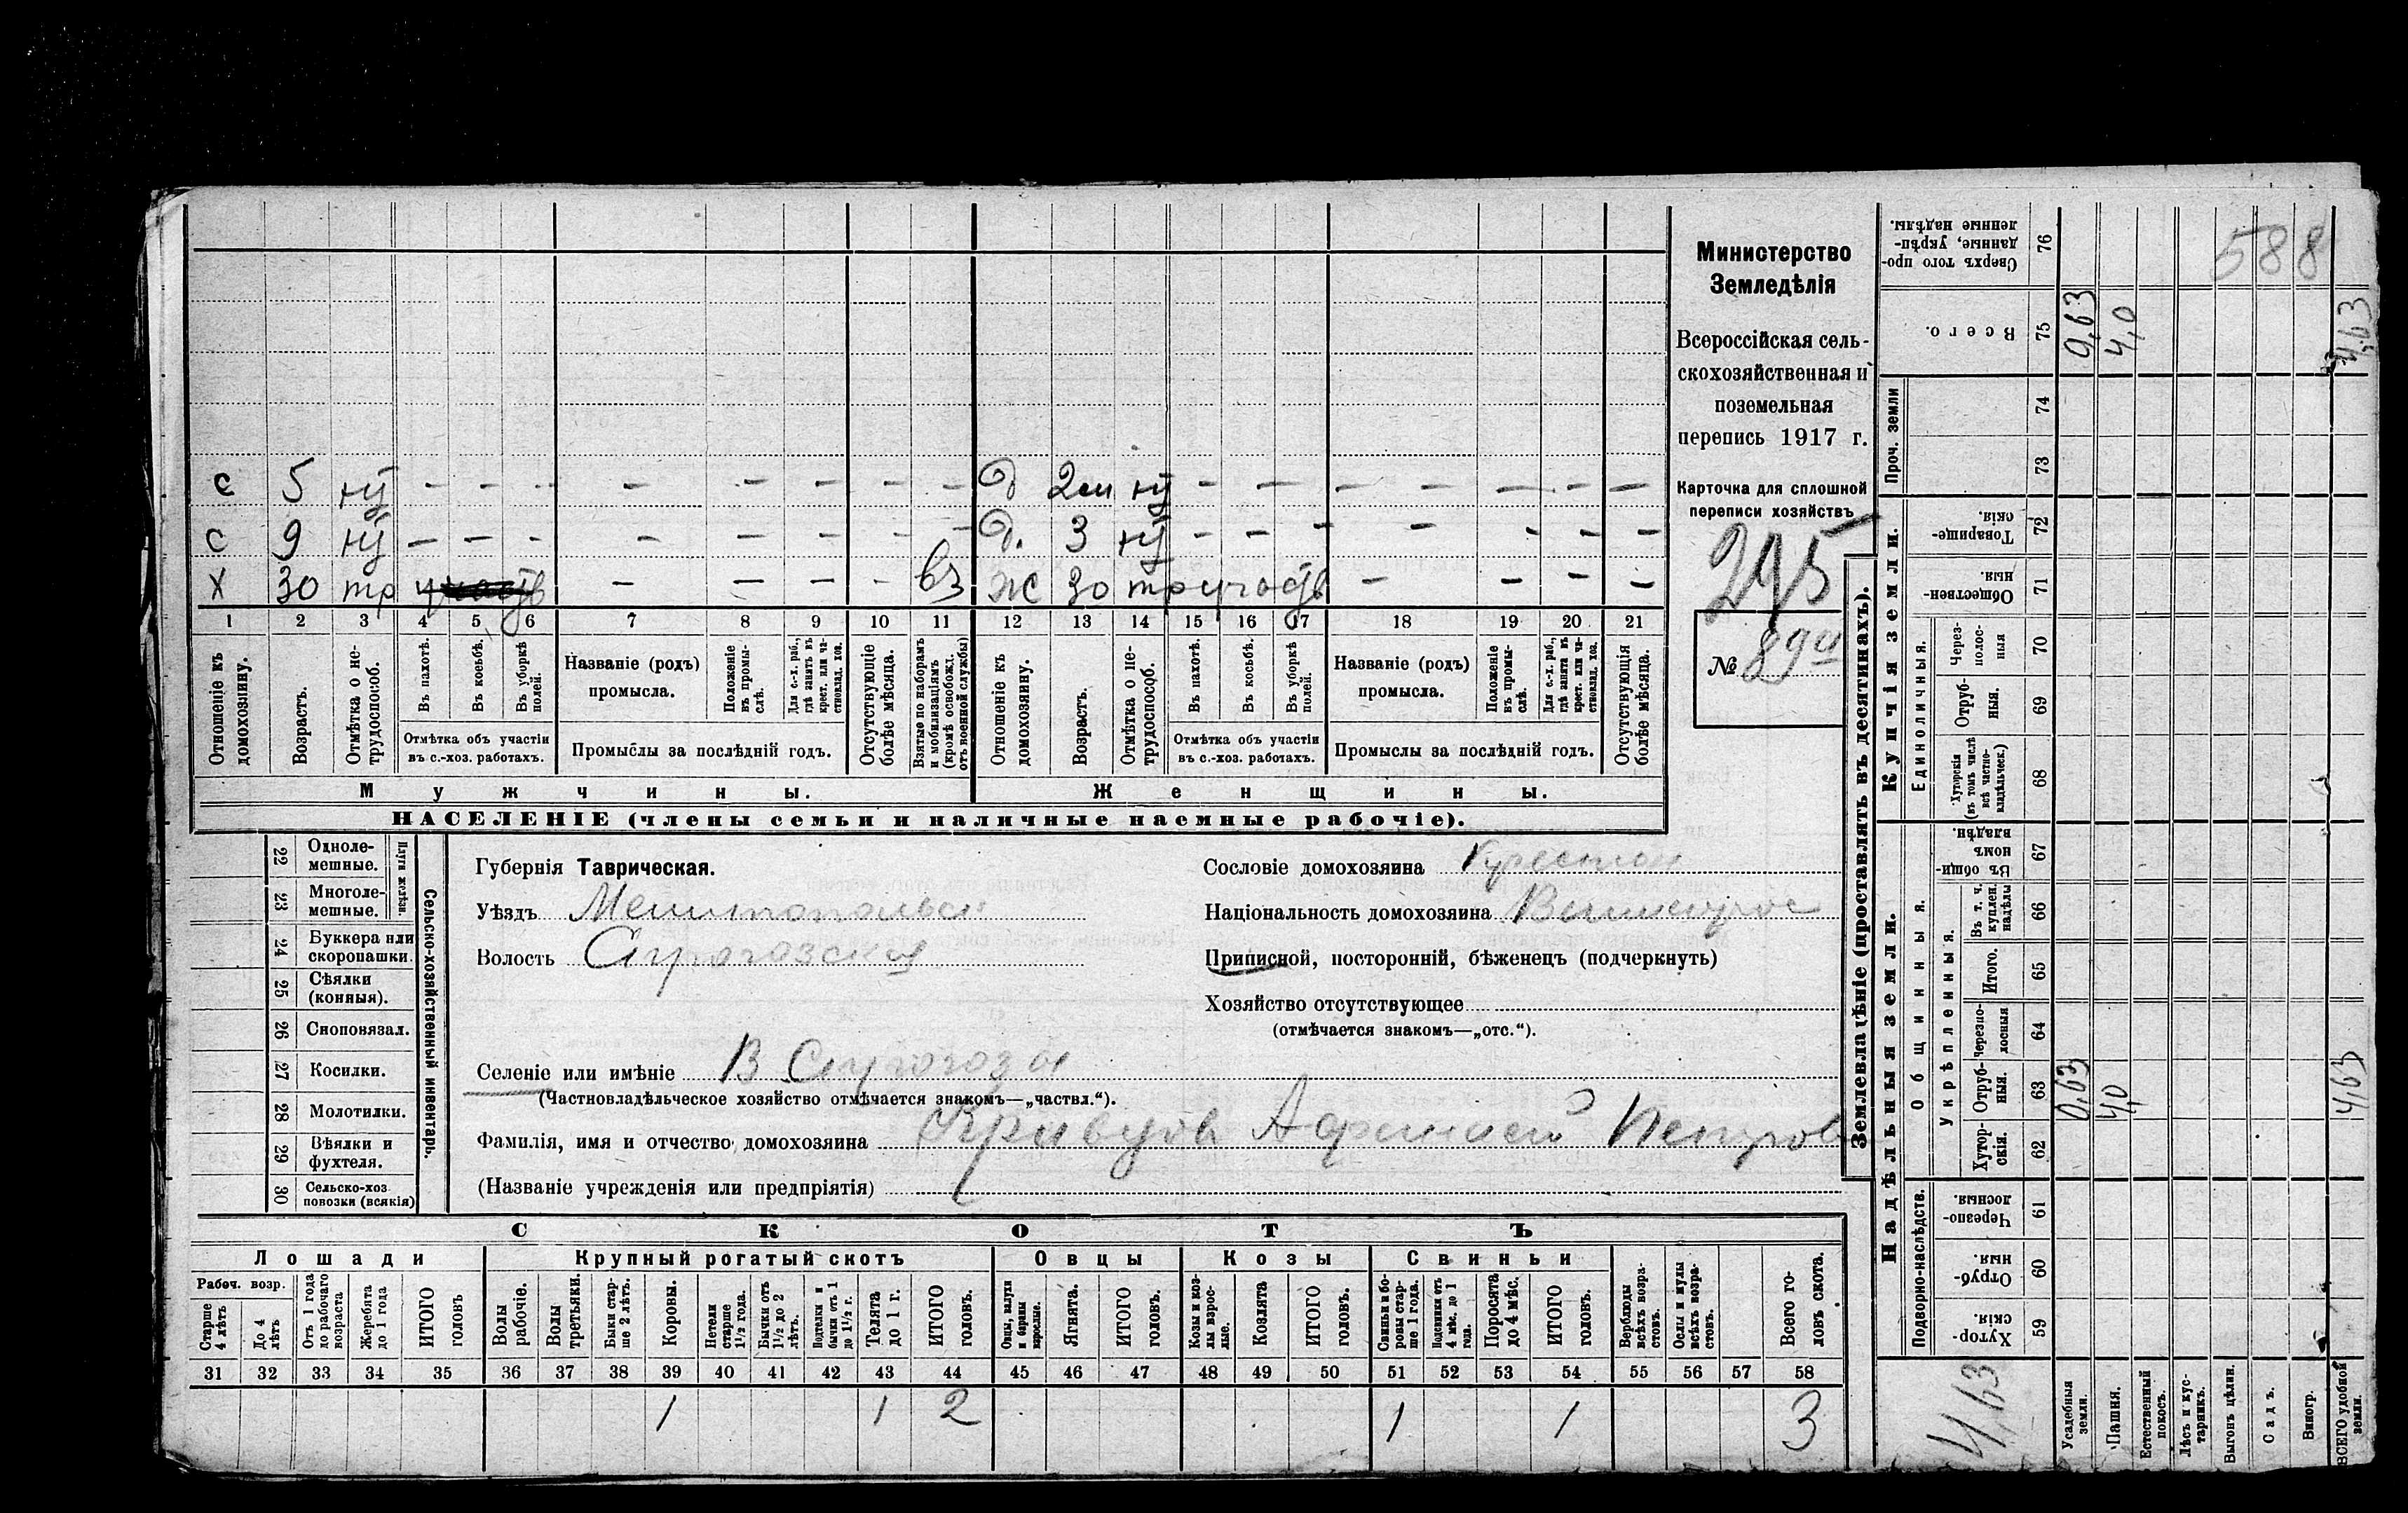 588
Министерство
Земледѣлія
Всероссійская сель-
скохозяйственная и
поземельная
перепись 1917 г.
Карточка для сплошной
переписи хозяйствъ
№ 89
с 5 – – – – – – – – д 2 – – – – – – –
с 9 – – – – – – – – д. 3 – – – – – – –
х 30 тр – – – – вз ж 30 тр участв – – – –
1 2 3 4 5 6 7 8 9 10 11 12 13 14 15 16 17 18 19 20 21
Отношеніе къ домохозяину.
Возрастъ.
Отмѣтка о не-трудоспособ.
Въ пахотѣ.
Въ косьбѣ.
Въ уборкѣ полей.
Отмѣтка объ участіи въ с.-хоз. работахъ.
Названіе (родъ) промысла.
Положеніе въ промы-слѣ.
Для с.-х. раб., гдѣ занятъ въ крест. или ча-стновлад. хоз.
Промыслы за послѣдній годъ.
Отсутствующіе болѣе мѣсяца.
Взятые по наборамъ и мобилизаціямъ (кромѣ освобожд. отъ военной службы)
Отношеніе къ домохозяину.
Возрастъ.
Отмѣтка о не-трудоспособ.
Въ пахотѣ.
Въ косьбѣ.
Въ уборкѣ полей.
Отмѣтка объ участіи въ с.-хоз. работахъ.
Названіе (родъ) промысла.
Положеніе въ промы-слѣ.
Для с.-х. раб., гдѣ занятъ въ крест. или ча-стновлад. хоз.
Промыслы за послѣдній годъ.
Отсутствующія болѣе мѣсяца.
Мужчины. Женщины.
НАСЕЛЕНІЕ (члены семьи и наличные наемные рабочіе).
Сельско-хозяйственный инвентарь.
Плуги желѣзн.
22 Одноле-мешные.
23 Многоле-мешные.
24 Буккера или скоропашки.
25 Сѣялки (конныя).
26 Сноповязал.
27 Косилки.
28 Молотилки.
29 Вѣялки и фухтеля.
30 Сельско-хоз. повозки (всякія)
Губернія Таврическая.
Уѣздъ Мелитопольск
Волость
Селеніе или имѣніе В Серогозы
(Частновладѣльческое хозяйство отмѣчается знакомъ—„частвл.“).
Фамилія, имя и отчество домохозяина Кравцов Афанасий Петров
(Названіе учрежденія или предпріятія)
Сословіе домохозяина Крестян
Національность домохозяина Великорос
Приписной, посторонній, бѣженецъ (подчеркнуть)
Хозяйство отсутствующее
(отмѣчается знакомъ—„отс.“).
СКОТЪ
Лошади Крупный рогатый скотъ Овцы Козы Свиньи
Рабоч. возр.
Старше 4 лѣтъ
До 4 лѣтъ
Отъ 1 года до рабочаго возраста
Жеребята до 1 года
ИТОГО головъ
Волы рабочіе.
Волы третьяки.
Быки стар-ше 2 лѣтъ.
Коровы.
Нетели старше 1½ года.
Бычки отъ 1½ до 2 лѣтъ.
Подтелки и бычки отъ 1 до 1½ г.
Телята до 1 г.
ИТОГО головъ.
Овцы, валухи и бараны взрослые.
Ягнята.
ИТОГО головъ.
Козы и коз-лы взрос-лые.
Козлята
ИТОГО головъ.
Свиньи и бо-ровы стар-ше 1 года.
Подсвинки отъ 4 мѣс. до 1 года.
Поросята до 4 мѣс.
ИТОГО головъ.
Верблюды всѣхъ возра-стовъ.
Ослы и мулы всѣхъ возра-стовъ.
Всего го-ловъ скота.
31 32 33 34 35 36 37 38 39 40 41 42 43 44 45 46 47 48 49 50 51 52 53 54 55 56 57 58
1 1 2 1 1 3
Землевладѣніе (проставлять въ десятинахъ).
Надѣльныя земли. Купчія земли. Проч. земли
Подворно-наслѣдств.
Общинныя.
Укрѣпленныя.
Единоличныя.
59 Хутор-скія.
60 Отруб-ныя.
61 Черезпо-лосныя.
62 Хутор-скія.
63 Отруб-ныя.
64 Черезпо-лосныя
65 Итого.
66 Въ т. ч. куплен. надѣлы
67 Въ общи-номъ владѣн.
68 Хуторскія (въ томъ числѣ всѣ частно-владѣльческ.)
69 Отруб-ныя.
70 Через-полос-ныя
71 Обществен-ныя.
72 Товарище-скія.
73
74
75 Всего.
76 Сверхъ того про-данные, укрѣп-ленные надѣлы.
Усадебныя земли. 0,63 0,63
Пашня. 4,0 4,0
Естественный покосъ.
Лѣсъ и кус-тарникъ.
Выгонъ цѣлин.
Садъ.
Виногр.
ВСЕГО удобной земли. 4,63 4,63
4,63